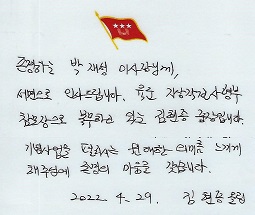 존경하는 박재성 이사장님께,
서면으로 인사드립니다. 육군 지상작전사령부
참모장으로 복무하고 있는 김현종 중장입니다.
기념사업을 펼치시는 원대한 의미를 느끼게
해주심에 존경의 마음을 갖습니다.
2022. 4. 29. 김현종 올림